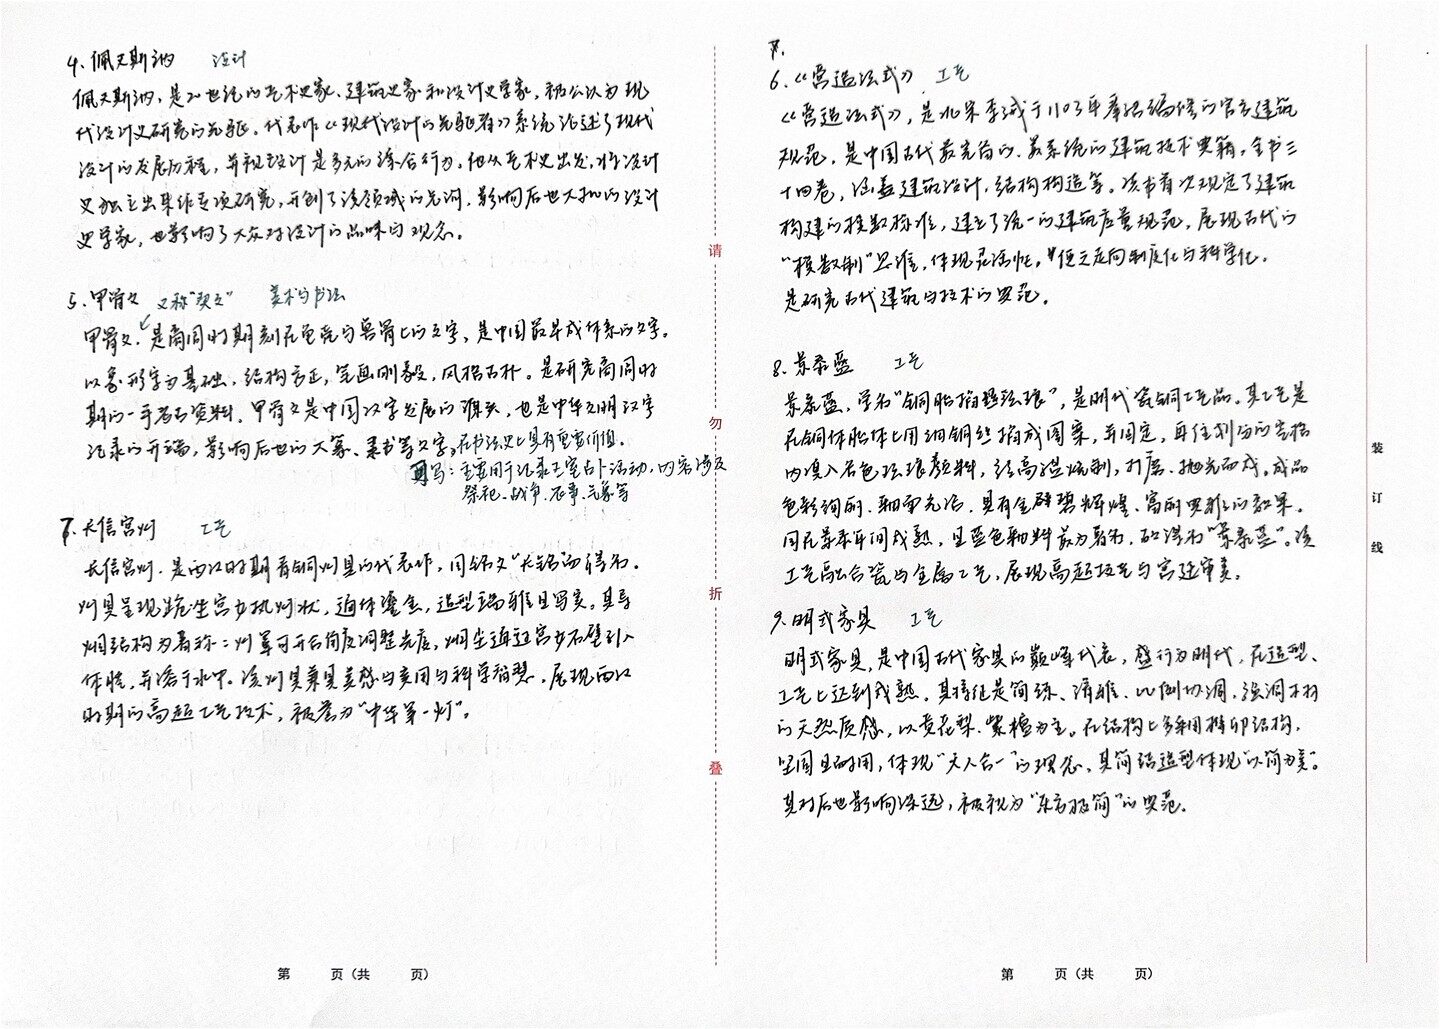 4、佩夫斯纳 设计
佩夫斯纳，是20世纪的艺术史家、建筑史家和设计史学家，被公认为现
代设计史研究的先驱。代表作《现代设计的先驱者》系统论述了现代
设计的发展历程，并视设计是多元的综合行为。他从艺术史出发，将设计
史独立出来作专项研究，开创了该领域的先河。影响后世大批的设计
史学家，也影响了大众对设计的品味与观念。
5、甲骨文 又称“契文” 美术与书法
甲骨文，是商周时期刻在龟壳与兽骨上的文字，是中国最早成体系的文字。
以象形字为基础，结构方正，笔画刚毅，风格古朴。是研究商周时
期的一手考古资料。甲骨文是中国汉字发展的源头，也是中华文明汉字
记录的开端，影响后世的大篆、隶书等文字。在书法史上具有重要价值。
写：主要用于记录王室占卜活动，内容涉及
祭祀、战争、农事、气象等
7、长信宫灯 工艺
长信宫灯，是西汉时期青铜灯具的代表作，因铭文“长信”而得名。
灯具呈现跪坐宫女执灯状，通体鎏金，造型端雅且写实。其导
烟结构为著称：灯罩可开合角度调整光度，烟尘通过宫女右臂引入
体腔，并溶于水中。该灯具兼具美感与实用与科学智慧，展现西汉
时期的高超工艺技术，被誉为“中华第一灯”。
请
勿
折
叠
7.
6、《营造法式》 工艺
《营造法式》，是北宋李诫于1103年奉旨编修的官方建筑
规范，是中国古代最完备的、最系统的建筑技术典籍，全书三
十四卷，涵盖建筑设计，结构构造等。该书首次规定了建筑
构建的模数标准，建立了统一的建筑居营规范，展现古代的
“模数制”思维，体现灵活性。使之走向制度化与科学化。
是研究古代建筑与技术的典范。
8、景泰蓝 工艺
景泰蓝，学名“铜胎掐丝珐琅”，是明代瓷铜工艺品。其工艺是
在铜体胎体上用细铜丝掐成图案，并固定，再往划分的空格
内填入各色珐琅颜料，经高温烧制，打磨、抛光而成。成品
色彩绚丽、釉面光洁，具有金碧辉煌、富丽典雅的效果。
因在景泰年间成熟，且蓝色釉料最为著名，故得名“景泰蓝”。该
工艺融合瓷与金属工艺，展现高超技艺与宫廷审美。
9、明式家具 工艺
明式家具，是中国古代家具的巅峰代表，盛行为明代，在造型、
工艺上达到成熟。其特征是简练、清雅、比例协调，强调木材
的天然质感，以黄花梨、紫檀为主。在结构上多采用榫卯结构，
坚固且耐用，体现“天人合一”的理念，其简洁造型体现“以简为美”。
其对后世影响深远，被视为“东方极简”的典范。
装
订
线
第 页（共 页）
第 页（共 页）